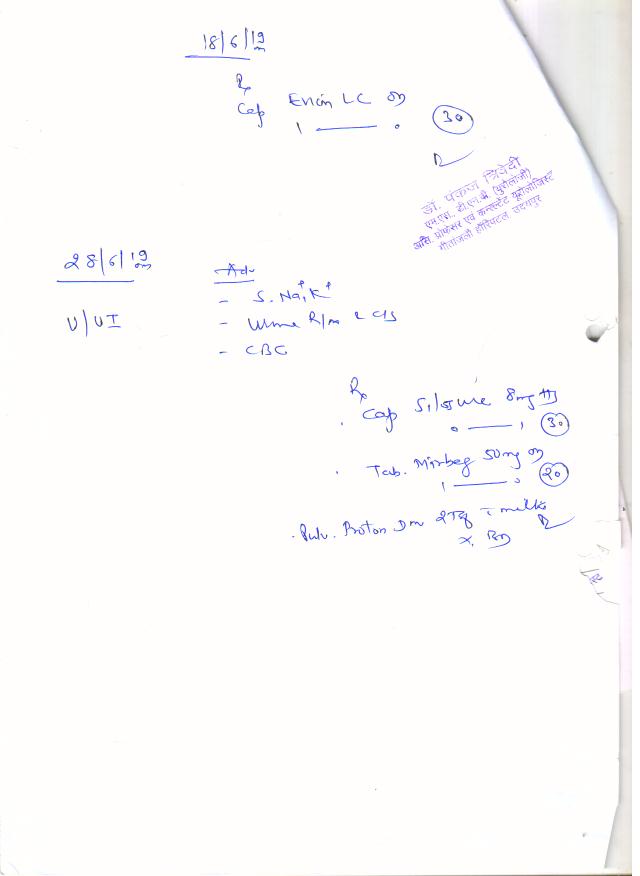 18/6/19
Rx
Cap Evion LC OD
1 —— 0 30
डॉ. पंकज त्रिवेदी
एम.एस. डी.एन.बी. (यूरोलोजी)
असि. प्रोफेसर एवं कन्सल्टेंट यूरोलोजिस्ट
गीतांजली हॉस्पिटल, उदयपुर
28/6/19
U/UI
Adv
- S. Na+, K+
- Urine R/m & C/S
- CBC
Rx
. Cap Silosure 8mg HS
0 —— 1 30
. Tab. Mirbeg 50mg OD
1 —— 0 20
. Pulv. Proton Dm 2Tsf c milk
x BD